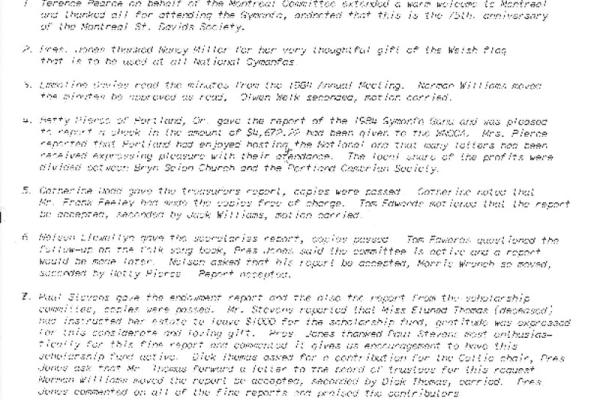 1 Terence Pearce on behalf of the Montreal Committee extended a warm welcome to Montreal
and thanked all for attending the Gymanfa, and noted that this is the 75th. anniversary
of the Montreal St. Davids Society.
2. Pres. Jones thanked Nancy Miller for her very thoughtful gift of the Welsh flag
that is to be used at all National Gymanfas
3. Emmaline Davies read the minutes from the 1984 Annual Meeting. Norman Williams moved
the minutes be approved as read, Olwen Welk seconded, motion carried.
4. Hetty Pierce of Portland, Or. gave the report of the 1984 Gymanfa Ganu and was pleased
to report a check in the amount of had been given to the WNGGA. Mrs. Pierce
reported that Portland had enjoyed hosting the National and that many letters had been
received expressing pleasure with their The local share of the profits were
divided between Bryn Seion Church and the Portland Cambrian Society.
5. Catherine gave the treasurers report, copies were passed Catherine noted that
Mr. Frank Feeley had made the copies free of charge. Tom Edwards motioned that the report
be accepted, seconded by Jack Williams, motion carried.
6 Nelson Llewellyn gave the report, copies passed Tom Edwards questioned the
follow-up on the folk song book, Pres Jones said the committee is active and a report
would be made later. Nelson asked that his report be accepted, Morris so moved,
seconded by Hetty Pierce Report accepted.
7. Paul Stevens gave the endowment report and the also the report from the scholarship
committee, copies were passed. Mr. Stevens reported that Miss Eluned Thomas (deceased)
had instructed her estate to leave $1000 for the scholarship fund, was expressed
for this considerate and loving gift. Pres Jones thanked Paul Stevens most enthusias-
tically for this fine report and commented it gives us encouragement to have this
scholarship fund active. Dick Thomas asked for a contribution for the Celtic chair, Pres
Jones ask that Mr Thomas forward a letter to the board of trustees for this request
Norman Williams moved the report be accepted, seconded by Dick Thomas, carried. Pres
Jones commented on all of the fine reports and praised the contributors